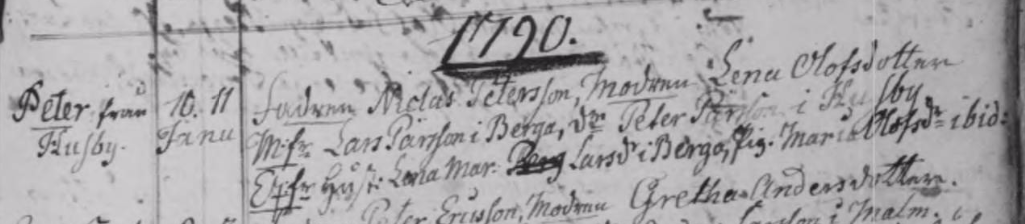 1790.
Peter från 10. 11 Fadren Niclas Petersson, Modren Lena Olofsdotter
Husby. Janu M:fr Lars Pärsson i Berga, Dr: Peter Pärsson i Husby
E:fr Hust: Lena Mar. Larsdr i Berga, Pig. Maria Olofsdr ibid:
Peter Ersson, Modren Gretha Andersdotter.
i Malm